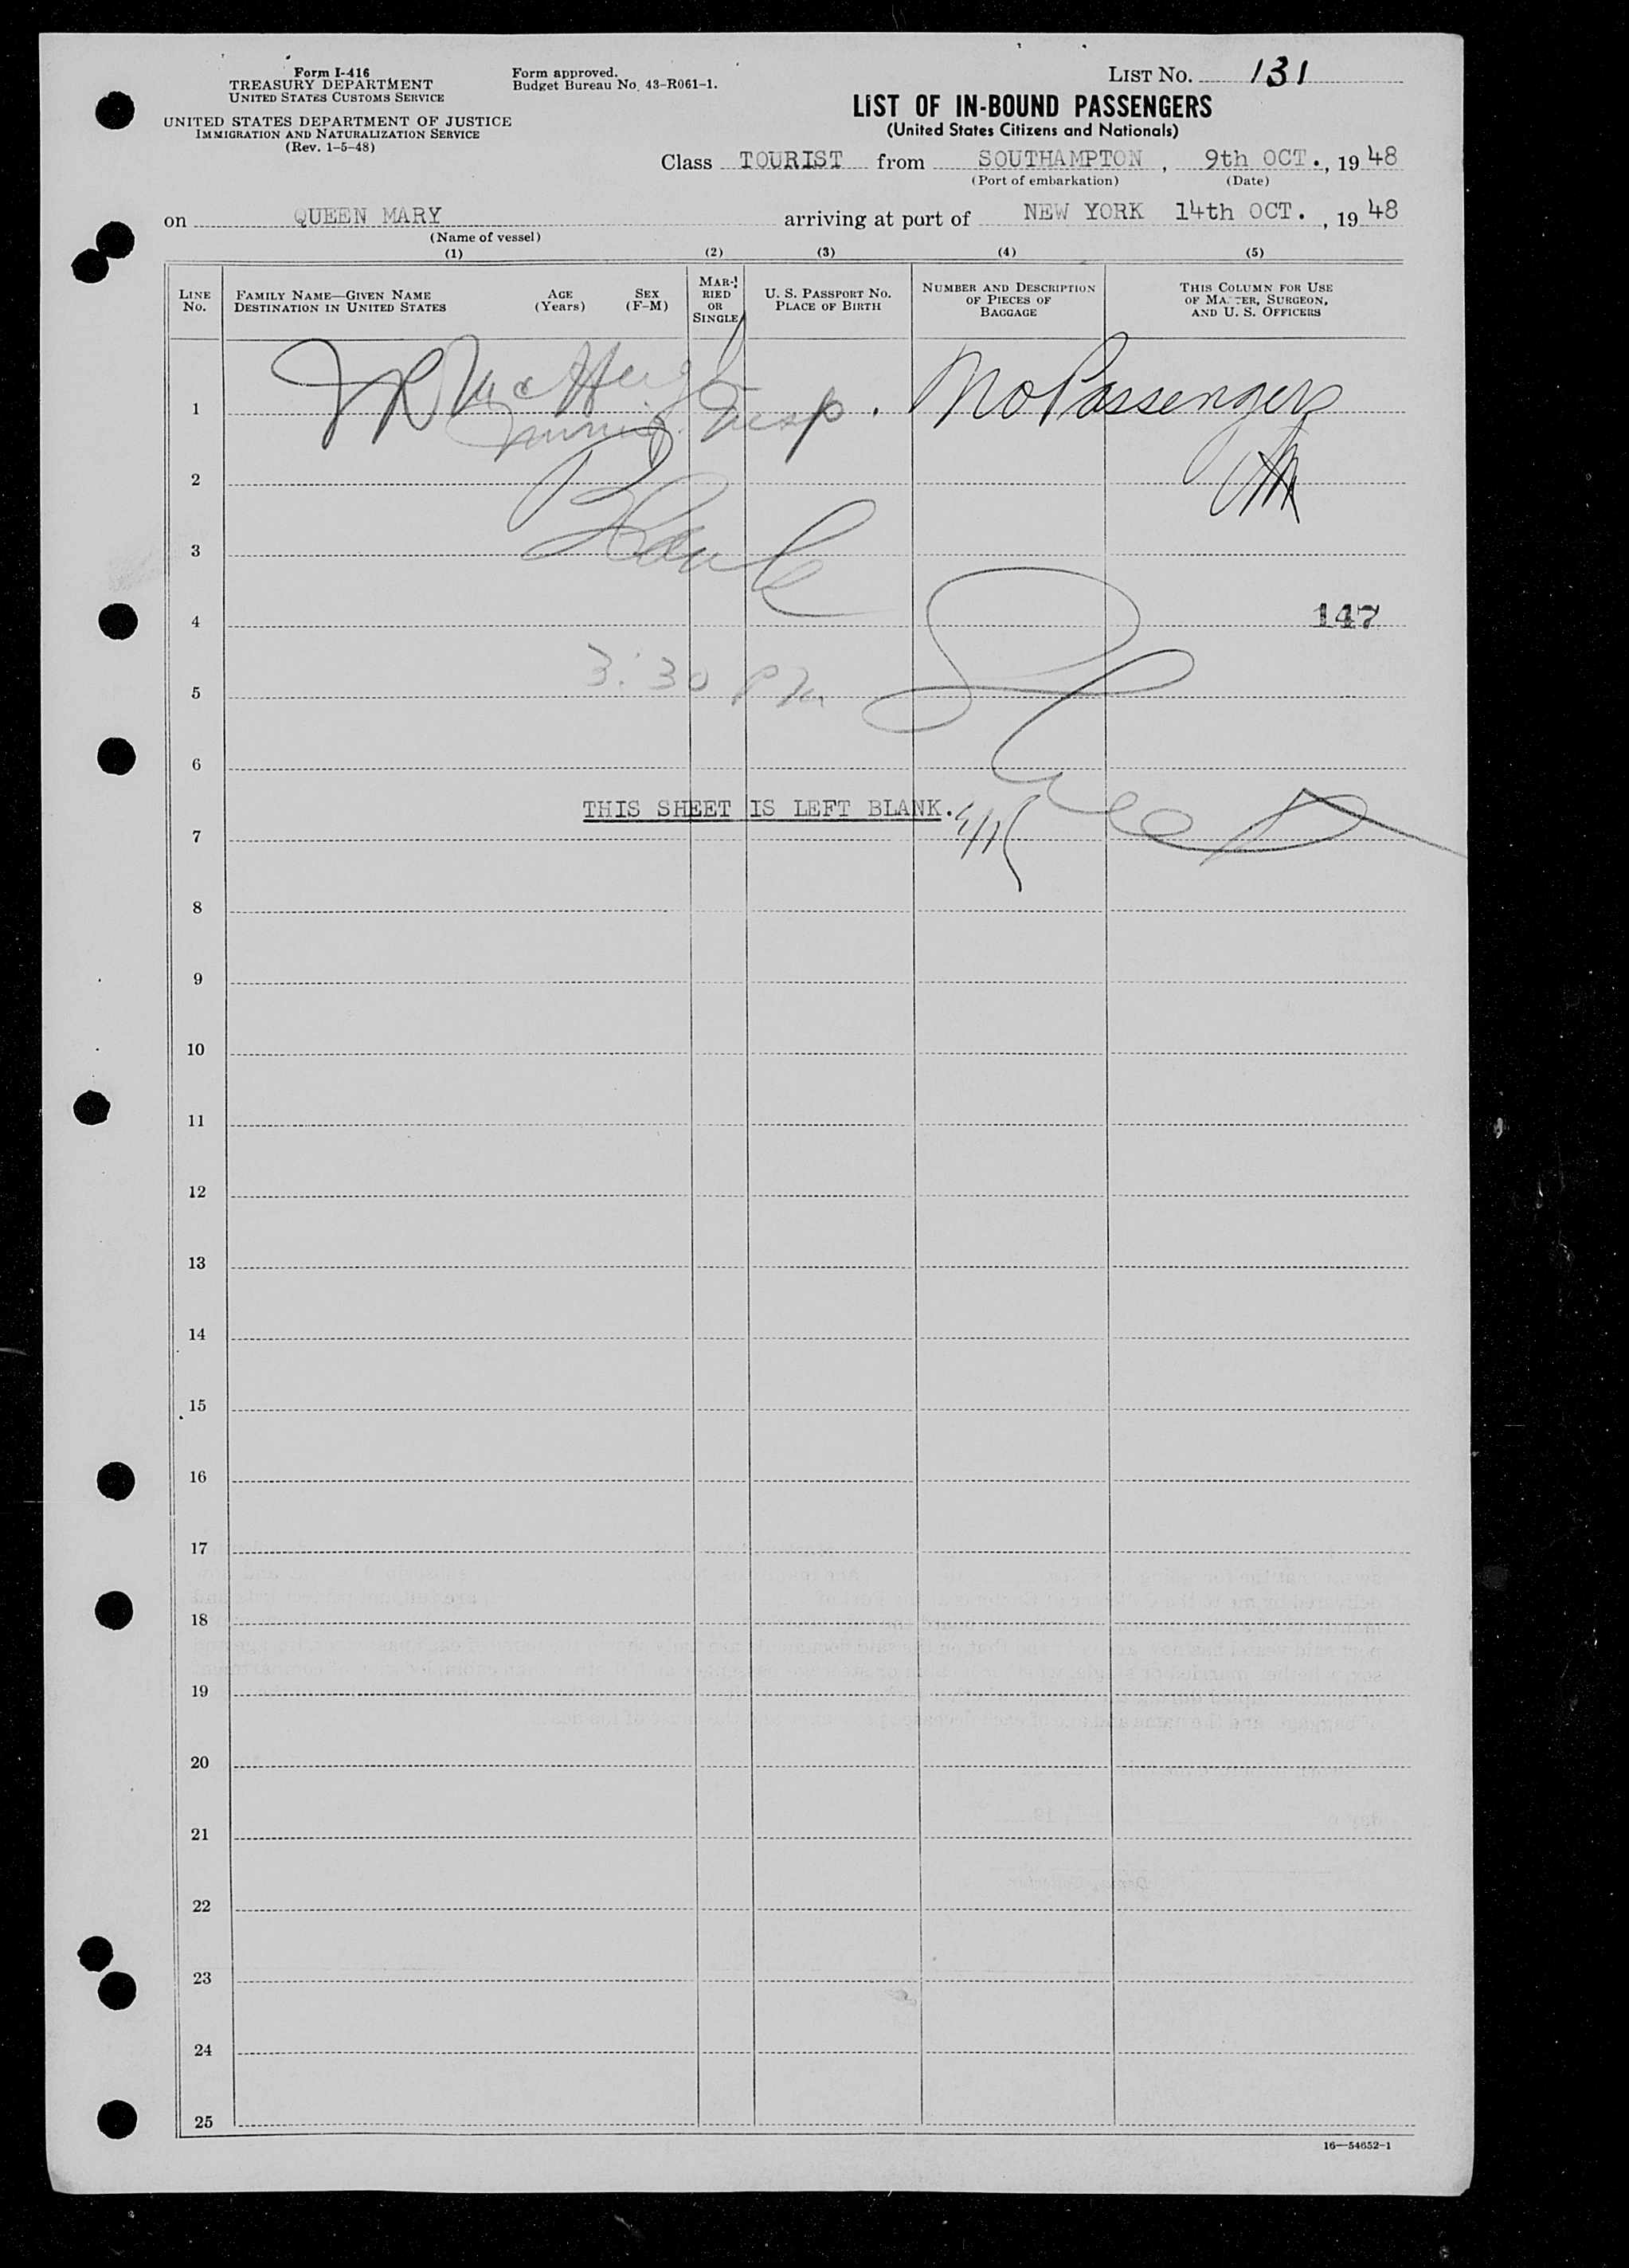 Form I-416
TREASURY DEPARTMENT
UNITED STATES CUSTOMS SERVICE
UNITED STATES DEPARTMENT OF JUSTICE
IMMIGRATION AND NATURALIZATION SERVICE
(Rev. 1-5-48)
Form approved.
Budget Bureau No. 43-R061-1.
LIST NO. 131
LIST OF IN-BOUND PASSENGERS
(United States Citizens and Nationals)
Class TOURIST from SOUTHAMPTON, 9th OCT., 19 48
(Port of embarkation) (Date)
on QUEEN MARY arriving at port of NEW YORK 14th OCT., 19 48
(Name of vessel)
(1) (2) (3) (4) (5)
LINE NO.
FAMILY NAME—GIVEN NAME
DESTINATION IN UNITED STATES
AGE (Years)
SEX (F-M)
MARRIED OR SINGLE
U. S. PASSPORT NO.
PLACE OF BIRTH
NUMBER AND DESCRIPTION OF PIECES OF BAGGAGE
THIS COLUMN FOR USE OF MASTER, SURGEON, AND U. S. OFFICERS
1 Insp. No Passengers
2
3 Blank
4 147
5 3:30 PM
6
THIS SHEET IS LEFT BLANK.
7
8
9
10
11
12
13
14
15
16
17
18
19
20
21
22
23
24
25
16—54652-1